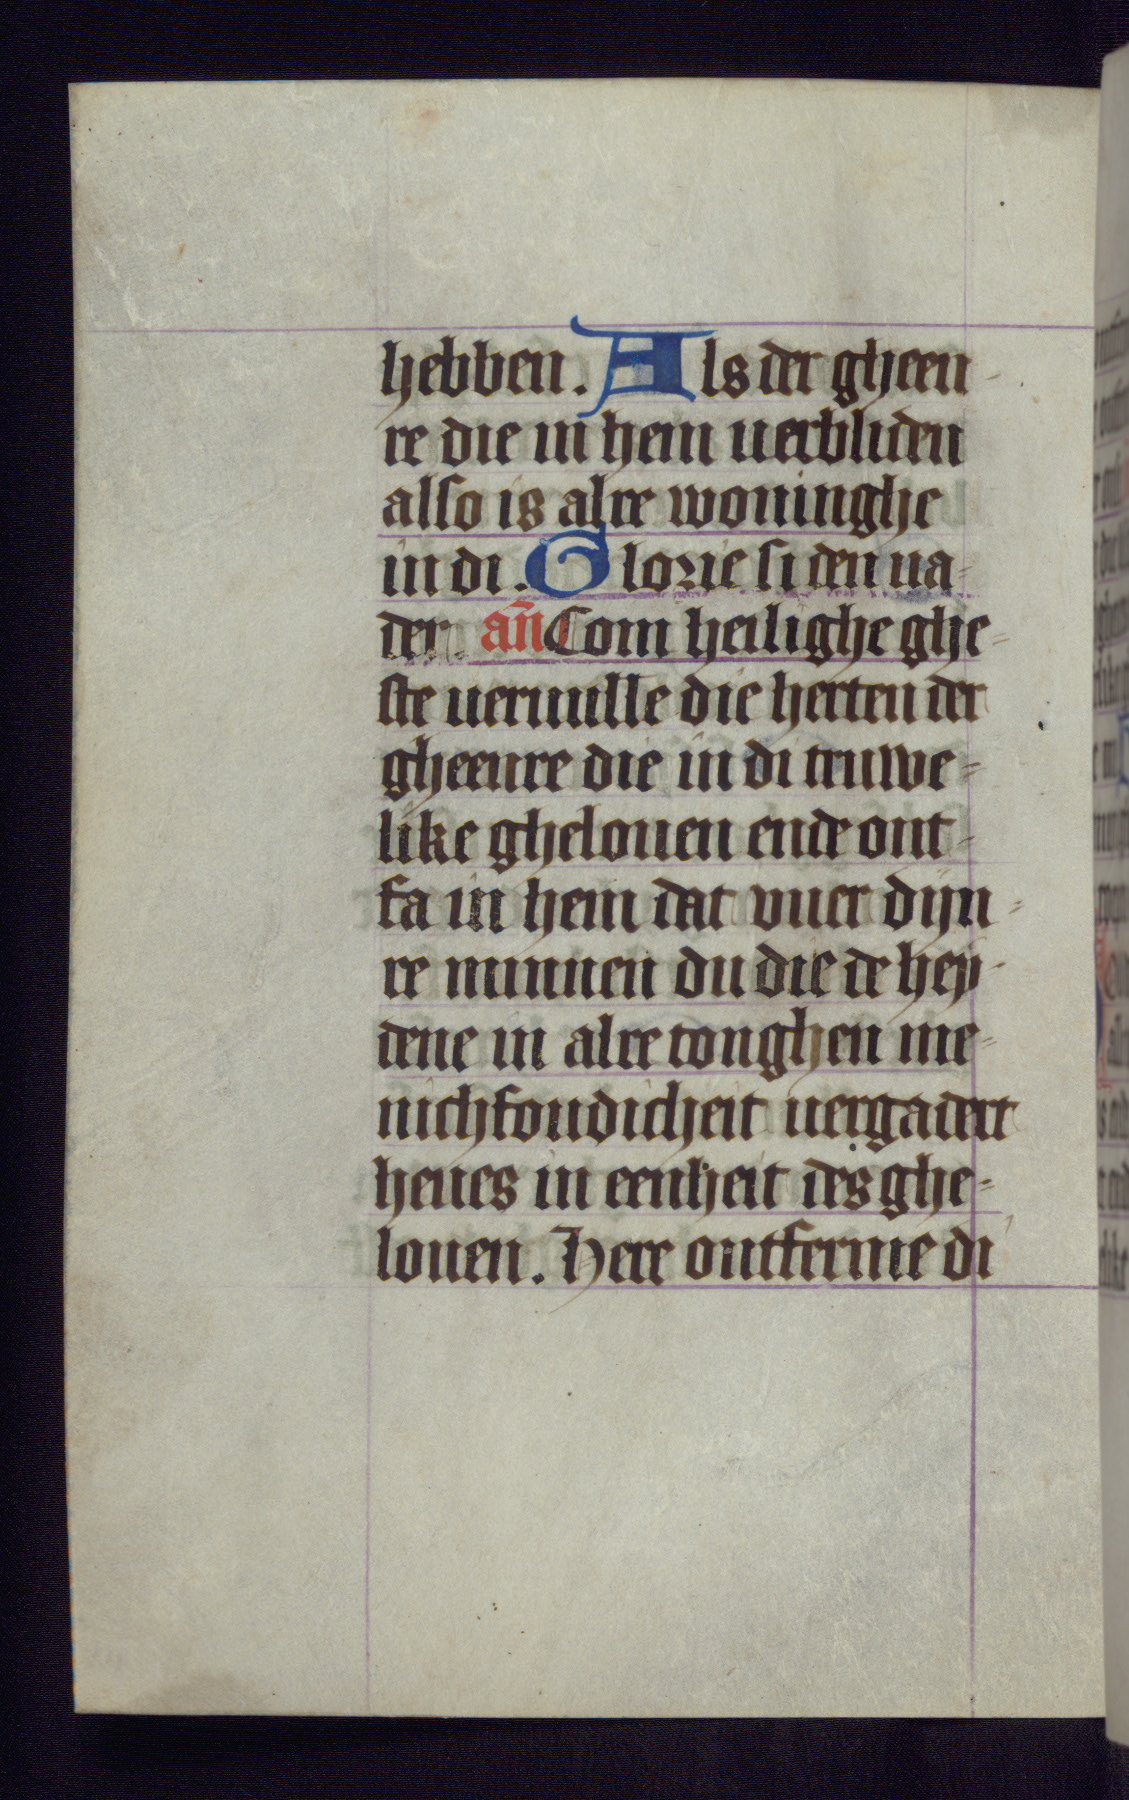 hebben. Als der gheen-
re die in hem verbliden
also is alre woninghe
in di. Glorie si den va-
der. an̄ Com heilighe ghe-
ste vervulle die herten der
gheenre die in di truwe-
like gheloven ende ont-
fa in hem dat vuer dijn-
re minnen du die de hey-
dene in alre tonghen me-
nichfoudicheit vergadert
heves in eenheit des ghe-
loven. Here ontferme di